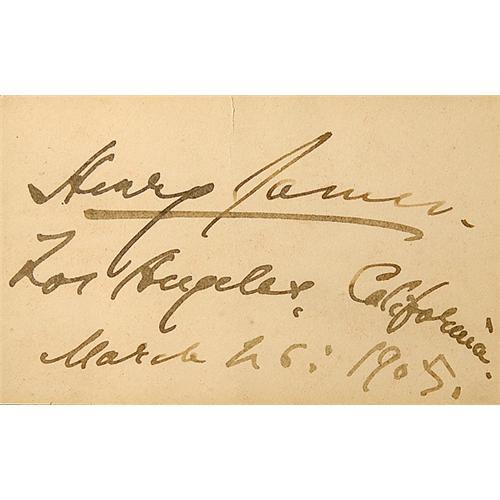 Henry James.
Los Angeles, California.
March 26: 1905.